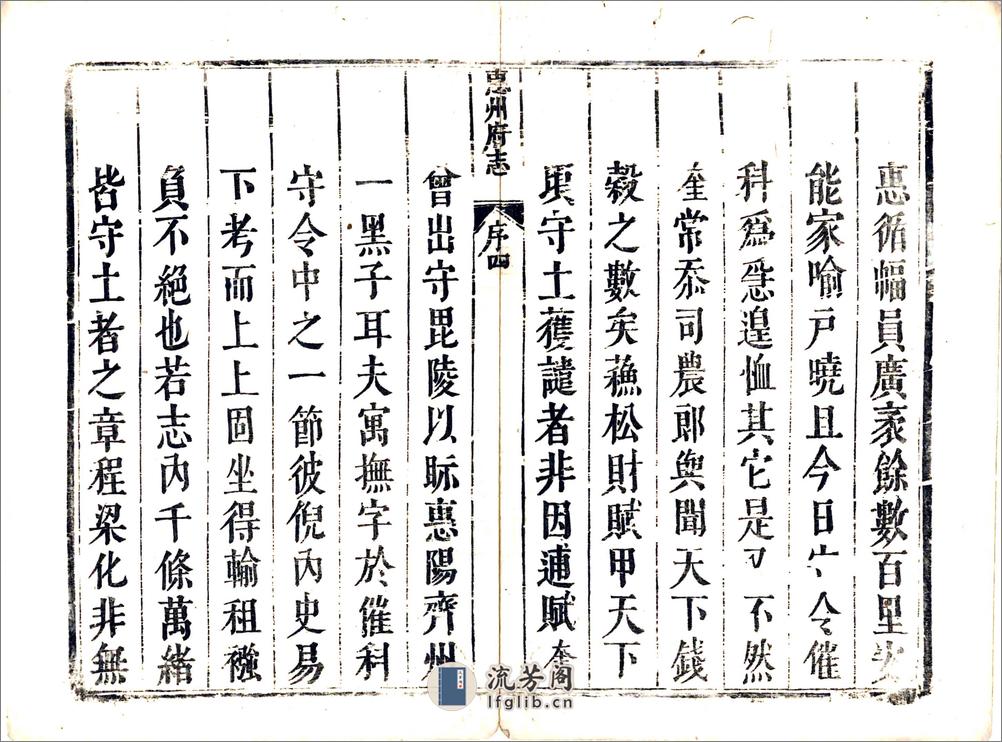 惠循幅員廣袤餘數百里安
能家喻戶曉且今日守令催
科爲急遑恤其它是又不然
奎常忝司農郎與聞天下錢
穀之數矣蘓松財賦甲天下
頃守土獲譴者非因逋賦奎
惠州府志
序四
曾出守毘陵以眎惠陽齊州
一黑子耳夫寓撫字於催科
守令中之一節彼倪內史易
下考而上上固坐得輸租襁
負不絕也若志內千條萬緒
皆守土者之章程梁化非無
流芳阁
lfglib.cn